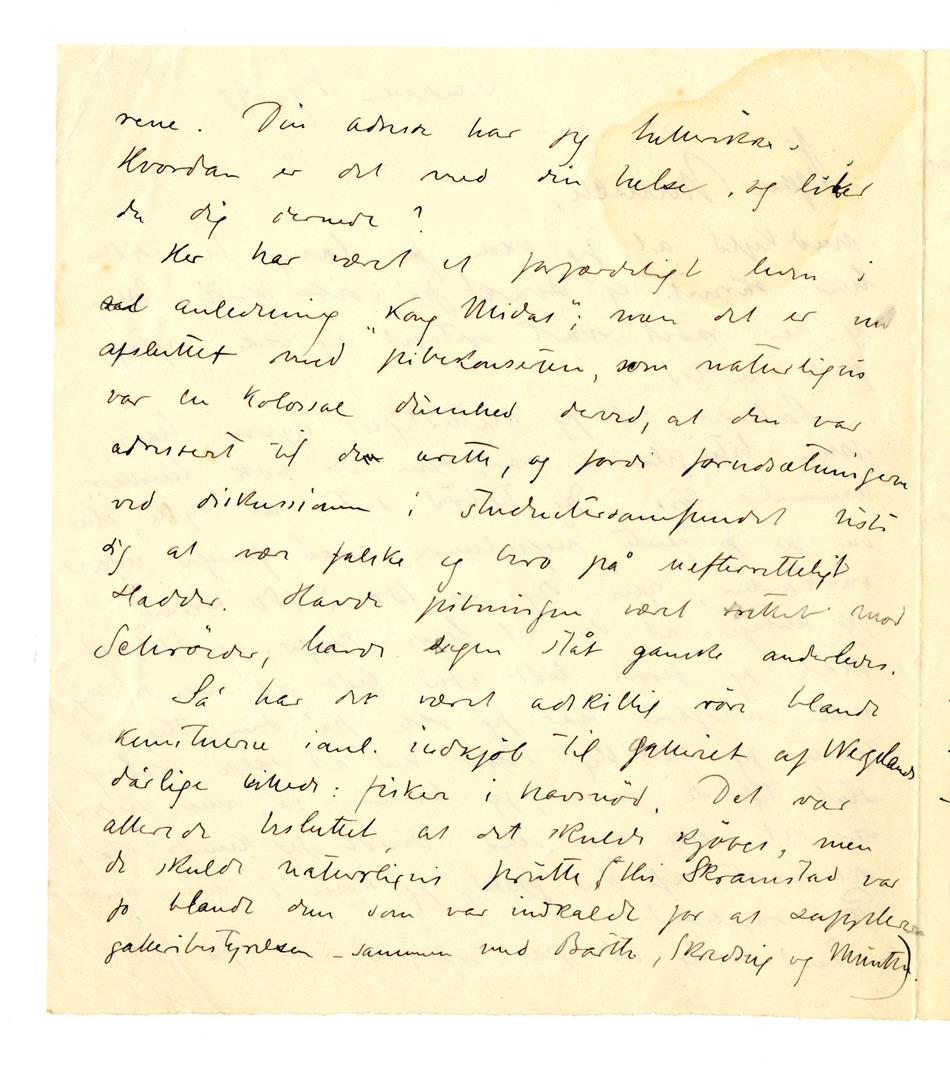 rene. Din adresse har jeg hellerikke.
Hvordan er det med din helse, og liker
du dig dernede?
Her har været et forfærdeligt leven i
anledning "Kong Midas"; men det er nu
afsluttet med pibekonserten, som naturligvis
var en kolossal dumhed derved, at den var
adressert til den urette, og fordi forudsætningerne
ved diskussionen i studentersamfundet viste
sig at være falske og bero på uefterretteligt
sladder. Havde pibningen været rettet mod
Schrøder, havde sagen ståt ganske anderledes.
Så har det været adskillig røre blandt
kunstnerne i anl. indkjøb til galleriet af Wergelands
dårlige billede: fisker i havsnød. Det var
allerede besluttet, at det skulde kjøbes, men
de skulde naturligvis prutte (Elis Skramstad var
jo blandt dem som var indkaldt for at supplere
galleribestyrelsen – sammen med Barth, Skredsvig og Munthe).